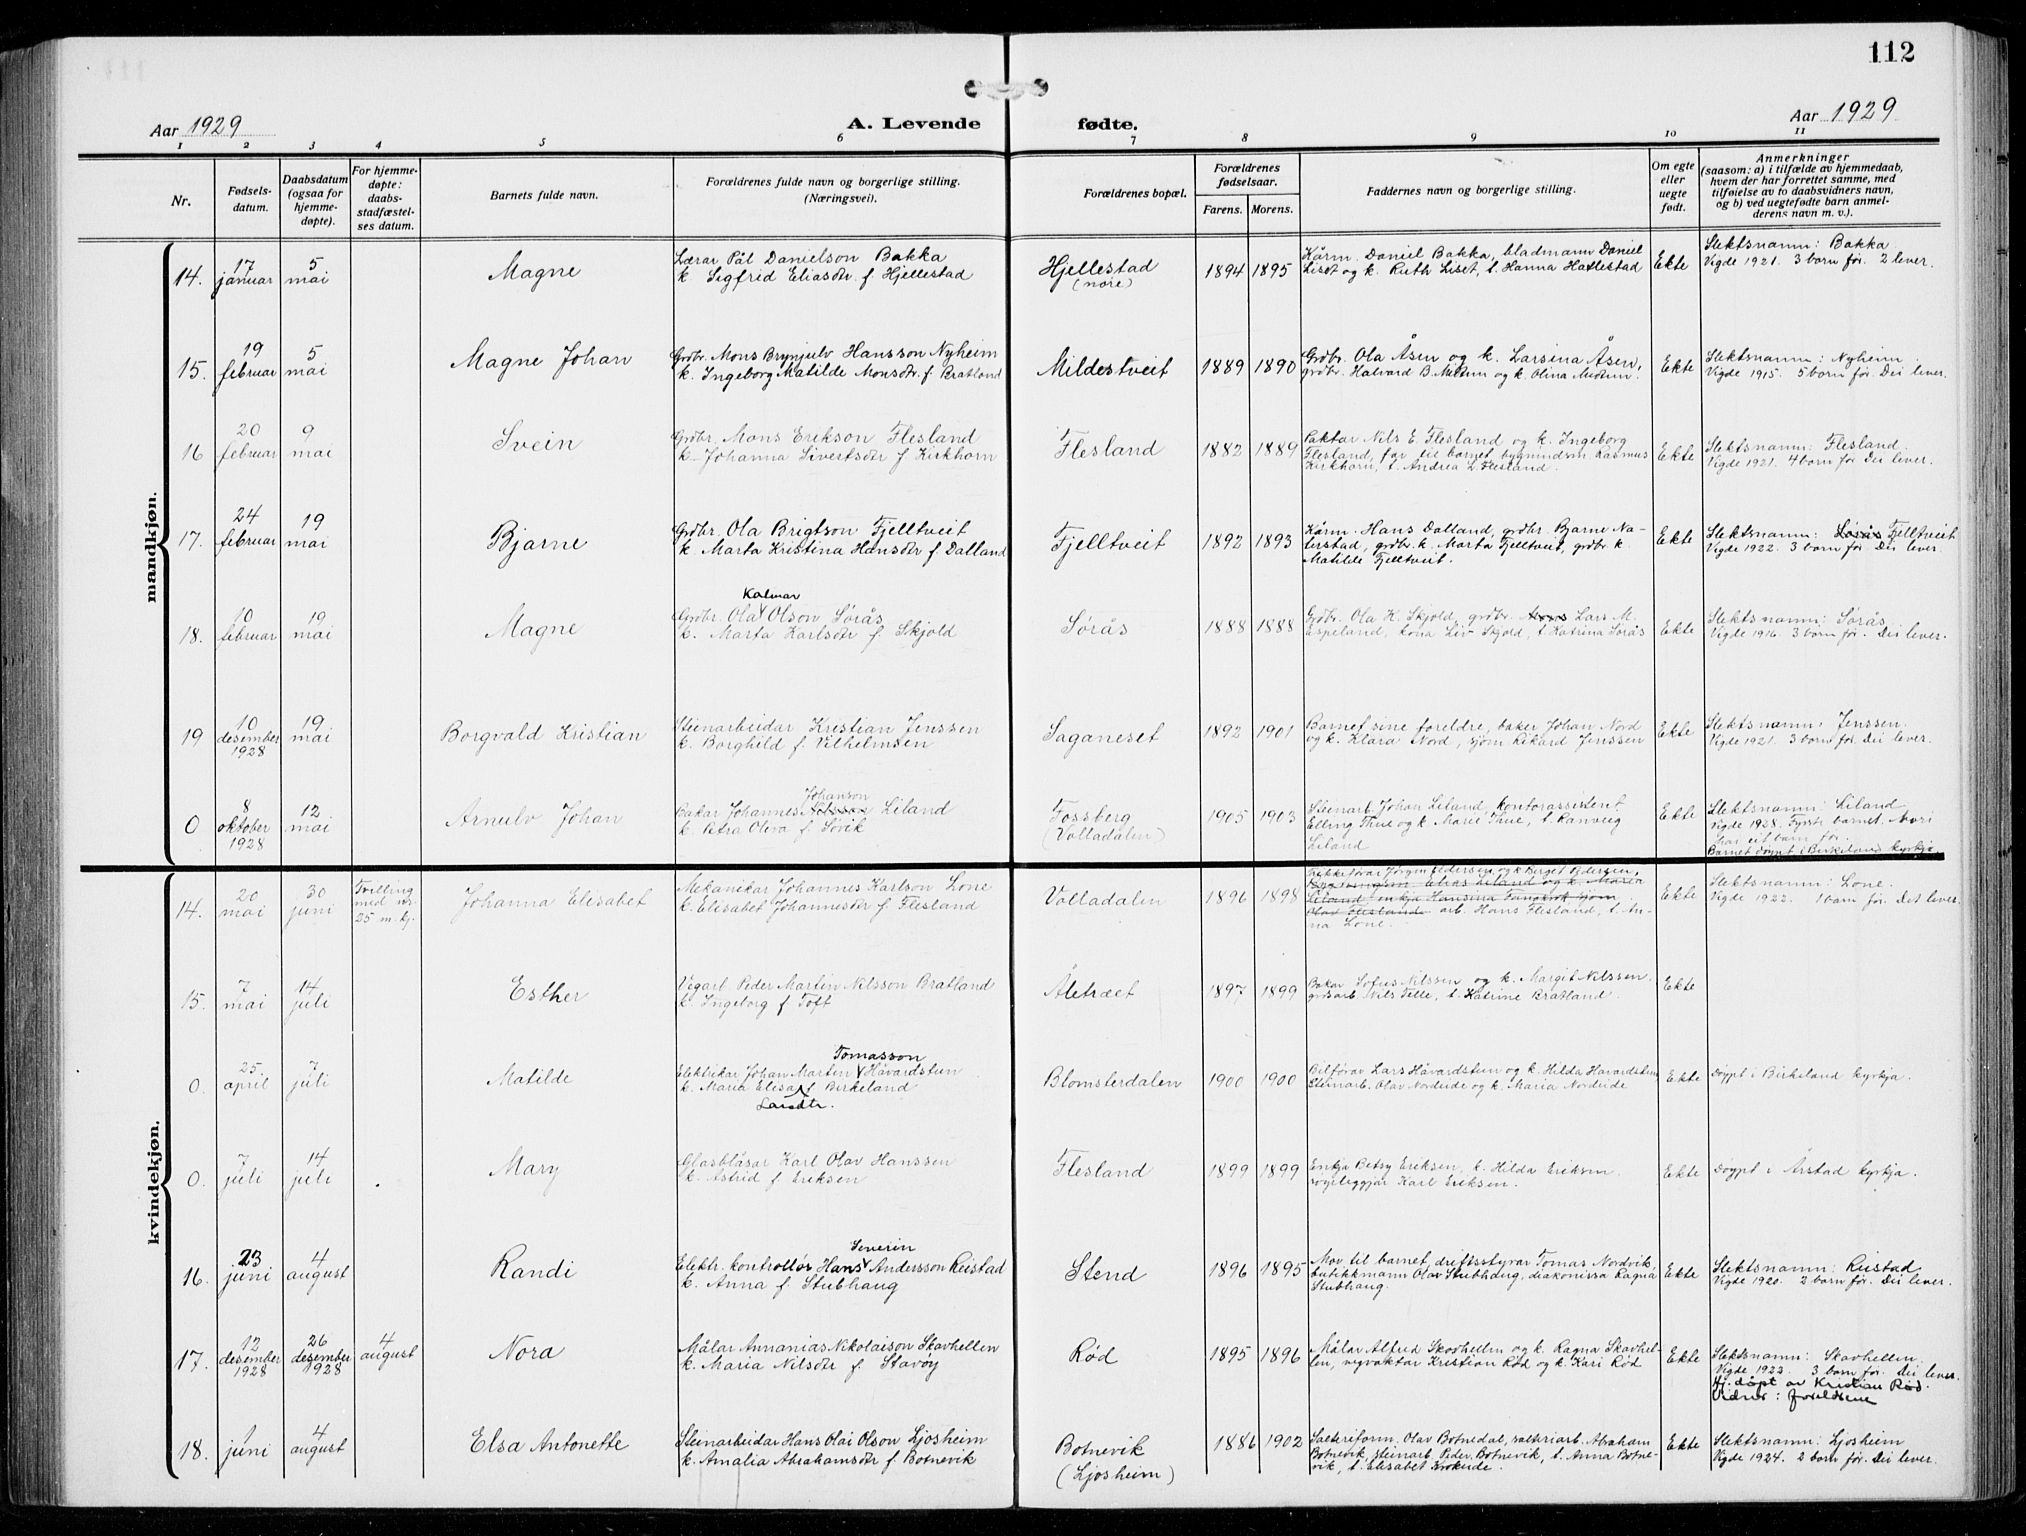 112
Aar 1929
A. Levende fødte.
Aar 1929
1 2 3 4 5 6 7 8 9 10 11
Nr.
Fødsels-
datum.
Daabsdatum
(ogsaa for
hjemme-
døpte).
For hjemme-
døpte:
daabs-
stadfæstel-
ses datum.
Barnets fulde navn.
Forældrenes fulde navn og borgerlige stilling.
(Næringsvei).
Forældrenes bopæl.
Forældrenes
fødselsaar.
Farens. Morens.
Faddernes navn og borgerlige stilling.
Om egte
eller
uegte
født.
Anmerkninger
(saasom: a) i tilfælde av hjemmedaab,
hvem der har forrettet samme, med
tilføielse av to daabsvidners navn,
og b) ved uegtefødte barn anmel-
derens navn m. v.).
mandkjøn.
14.
17
januar
5
mai
Magne
Lærar Pål Danielson Bakka
k. Sigfrid Eliasdtr. f. Hjellestad
Hjellestad
(nore)
1894 1895
Kårm. Daniel Bakka, bladmann Daniel
Liset og k. Ruth Liset, t. Hanna Hatlestad
Ekte
Slektsnamn: Bakka
Vigde 1921. 3 born før. 2 lever.
15.
19
februar
5
mai
Magne Johan
Grdbr. Mons Brynjulv Hansson Nyheim
k. Ingeborg Matilde Monsdtr. f. Bratland
Mildestveit
1889 1890
Grdbr. Ola Åsen og k. Larsina Åsen,
grdbr. Halvard B. Midtun og k. Olina Midtun.
Ekte
Slektsnamn: Nyheim
Vigde 1915. 5 born før. Dei lever.
16
20
februar
9
mai
Svein
Grdbr. Mons Erikson Flesland
k. Johanna Sivertsdtr. f. Kirkhorn
Flesland
1882 1889
Paktar Nils E. Flesland og k. Ingeborg
Flesland, far til barnet, bygmindsm. Rasmus
Kirkhorn, t. Andrea L. Flesland.
Ekte
Slektsnamn: Flesland.
Vigde 1921. 4 born før. Dei lever.
17.
24
februar
19
mai
Bjarne
Grdbr. Ola Brigtson Fjelltveit
k. Marta Kristina Hansdtr. f. Dalland
Fjelltveit
1892 1893
Kårm. Hans Dalland, grdbr. Bjarne Na-
terstad, grdbr. k. Marta Fjelltveit, grdbr. k.
Matilde Fjelltveit.
Ekte
Slektsnamn: Sørås Fjelltveit
Vigde 1922. 3 born før. Dei lever.
18.
10
februar
19
mai
Magne
Kalmar
Grdbr. Ola Olson Sørås
k. Marta Karlsdtr. f. Skjold
Sørås
1888 1888
Grdbr. Ola K. Skjold, grdbr. Lars M.
Espeland, kona Liv Skjold, t. Katrina Sørås
Ekte
Slektsnamn: Sørås
Vigde 1916. 3 born før. Dei lever.
19
10
desember
1928
19
mai
Borgvald Kristian
Steinarbeidar Kristian Jenssen
k. Borghild f. Vilhelmsen
Saganeset
1892 1901
Barnet sine foreldre, baker Johan Nord
og k. Klara Nord, sjøm. Rikard Jenssen
Ekte
Slektsnamn: Jenssen.
Vigde 1921. 3 born før. Dei lever.
0
8
oktober
1928
12
mai
Arnulv Johan
Johanson
Bakar Johannes Nilsson Liland
k. Petra Oliva f. Søvik
Fossberg
(Volladalen)
1905 1903
Steinarb. Johan Liland, kontorassistent
Elling Thue og k. Marie Thue, t. Ranveig
Liland
Ekte
Slektsnamn: Liland
Vigde 1928. Fyrste barnet. Mori
har eit barn før.
Barnet døypt i Birkeland kyrkja
kvindekjøn.
14.
20
mai
30
juni
Tvilling
med nr.
25 m. kj.
Johanna Elisabet
Mekanikar Johannes Karlson Lone
k. Elisabet Johannesdtr. f. Flesland
Volladalen
1896 1898
Trikkeførar Jørgen Pedersen og k. Berget Pedersen,
Elias Liland og k. Maria
Liland enkja Hansina sjøm.
Olav Flesland arb. Hans Flesland, t. An-
na Lone.
Ekte
Slektsnamn: Lone.
Vigde 1922. 1 born før. Det lever.
15.
7
mai
14
juli
Esther
Vegarb. Peder Martin Nilsson Bratland
k. Ingeborg f. Toft
Åletræet
1897 1899
Bakar Sofus Nilssen og k. Margit Nilssen.
grdsarb. Nils Telle, t. Katrine Bratland.
Ekte
0.
25.
april
7
juli
Matilde
Tomasson
Elektrikar Johan Martin Håvardstun
k. Maria Elisa f. Birkeland
Larsdtr.
Blomsterdalen
1900 1900
Bilførar Lars Håvardstun og k. Hilda Håvardstun,
Steinarb. Olav Nordeide og k. Maria Nordeide
Ekte
Døypt i Birkeland kyrkja.
0.
7
juli
14
juli
Mary
Glasblåsar Karl Olav Hanssen
k. Astrid f. Eriksen
Flesland
1899 1899
Enkja Betsy Eriksen, k. Hilda Eriksen
røyrleggjar Karl Eriksen.
Ekte
Døypt i Årstad kyrkja.
16.
23
juni
4
august
Randi
Severin
Elektr. kontrollør Hans Andersson Reistad
k. Anna f. Stubhaug
Stend
1896 1895
Mor til barnet, driftsstyrar Tomas Nordvik,
butikkmann Olav Stubhaug, diakonissa Ragna
Stubhaug.
Ekte
Slektsnamn: Reistad
Vigde 1920. 2 born før. Dei lever.
17.
12
desember
1928
26
desember
1928
4
august
Nora
Målar Annanias Nikolaison Skavhellen
k. Maria Nilsdtr. f. Stavøy
Rød
1895 1896
Målar Alfred Skavhellen og k. Ragna Skavhel-
len, vegvaktar Kristian Rød og k. Kari Rød
Ekte
Slektsnamn: Skavhellen.
Vigde 1922. 3 born før. Dei lever.
Hj. døpt av Kristian Rød.
Vidner: foreldrene
18.
1
juni
4
august
Elsa Antonette
Steinarbeidar Hans Olai Olson Ljosheim
k. Amalia Abrahamsdtr. f. Botnevik
Botnevik
(Ljosheim)
1886 1902
Salteriform. Olav Botnedal, salteriarb. Abraham
Botnevik, steinarb. Peder Botnevik, t. Anna Botne-
vik, t. Elisabet Krokeide.
Ekte
Slektsnamn: Ljosheim
Vigde 1924. 2 born før. Dei lever.